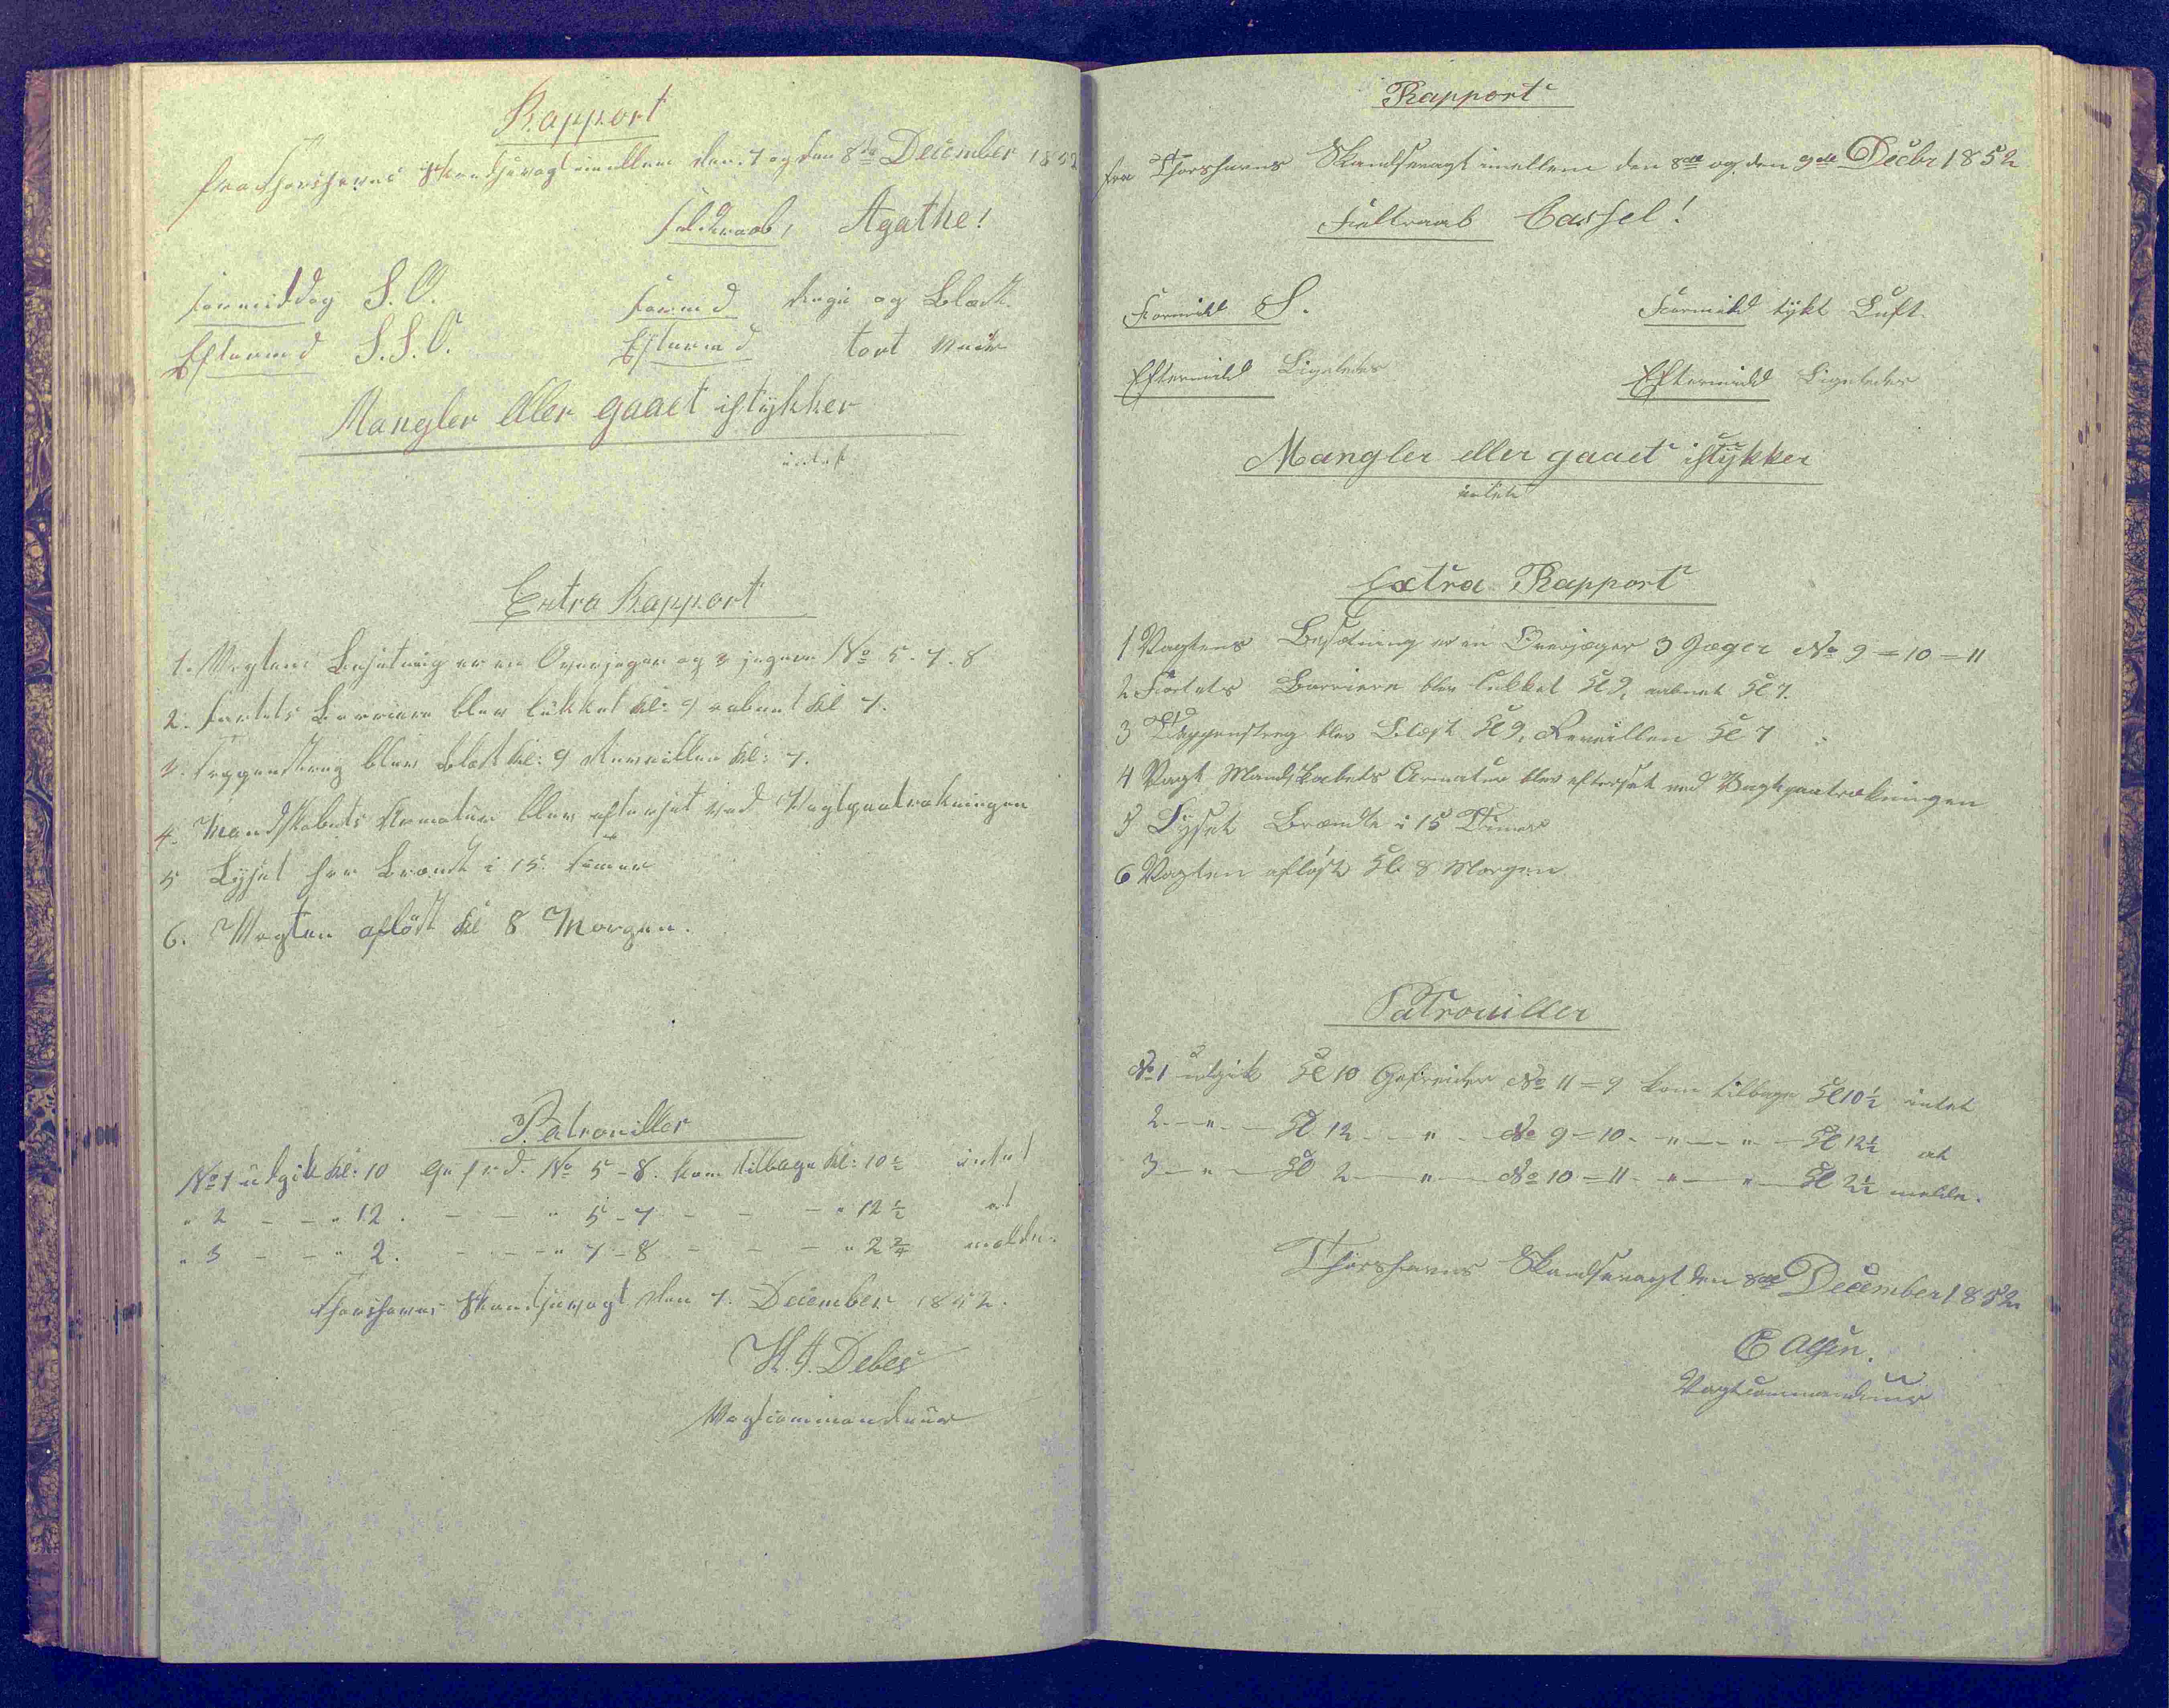 Rapport
fra Thorshavns Skandsevagt imellem den 7 og den 8de December 1852
Feldtraab, Agathe!
Formiddag S.O.
Formd Regn og Blæst.
Eftermd S.S.O.
Eftermd tørt
Mangler eller gaaet istykker
intet
Extra Rapport
1. Vagtens Besætning er en Overjæger og 3 jægere No 5-7-8
2. Fortets Barriere blev lukket kl: 9 aabnet kl 7.
3. Tappenstreg blev Blæst kl: 9 Reveillen kl: 7.
4. Mandskabets Armatur blev efterset ved Vagtpaatrækningen
5 Lyset har Brændt i 15. Timer
6. Vagten afløst kl 8 Morgen.
Patrouiller
No 1 udgik kl: 10 Gefrd. No 5-8. kom tilbage kl: 10½ intet
" 2 - - " 12. - - " 5-7 - - - " 12½ at
" 3 - - " 2. - - - " 7-8 - - - " 2¾ melde.
Thorshavns Skandsevagt den 7. December 1852.
H.J. Debes
Vagtcommandeur
Rapport
fra Thorshavns Skandsevagt imellem den 8de og den 9de Decbr 1852
Feltraab Cassel!
Formidd S.
Formidd tykt Luft
Eftermidd Ligeledes
Eftermidd Ligeledes
Mangler eller gaaet istykker
intet
Extra Rapport
1 Vagtens Besætning er en Overjæger 3 Jæger No 9=10=11
2 Fortets Barriere blev lukket Kl 9, aabnet Kl 7.
3 Tappenstreg blev Blæst Kl 9, Reveillen Kl 7
4 Vagt Mandskabets Armatur blev efterset ved Vagtpaatrækningen
5 Lyset Brændte i 15 Timer
6 Vagten afløst Kl 8 Morgen
Patrouiller
No 1 udgik Kl 10 Gefreider No 11=9 kom tilbage Kl 10½ intet
2 - " - Kl 12 - " - No 9=10 - " - " - Kl 12½ at
3 - " - Kl 2 - " - No 10=11 - " - " - Kl 2½ melde.
Thorshavns Skandsevagt den 8de December 1852
Vagtcommandeur